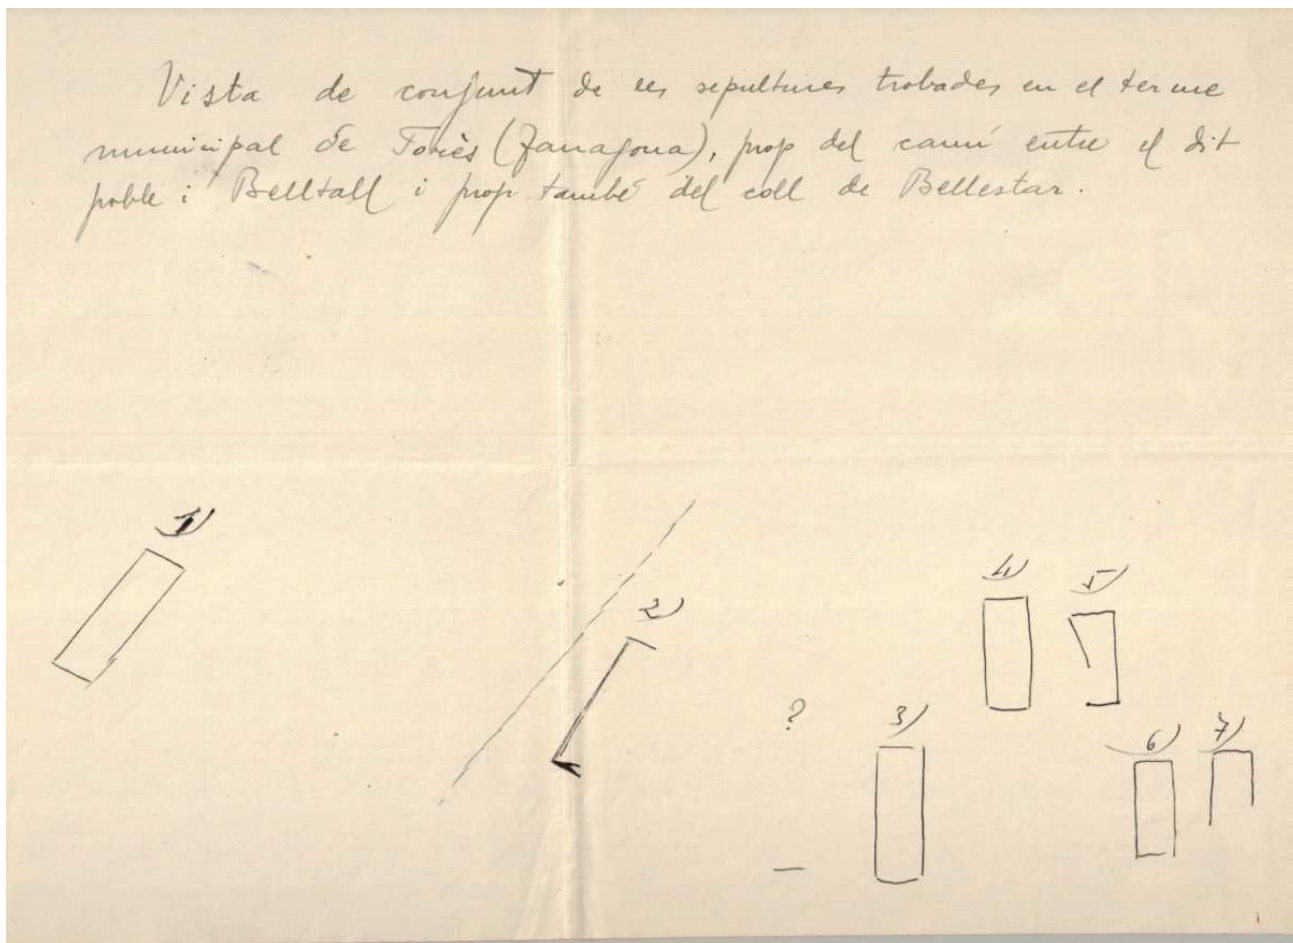 Vista de conjunt de les sepultures trobades en el terme
municipal de Forès (Tarragona), prop del camí entre el dit
poble i Belltall i prop també del coll de Bellestar.
1)
2)
4)
5)
?
3)
6)
7)